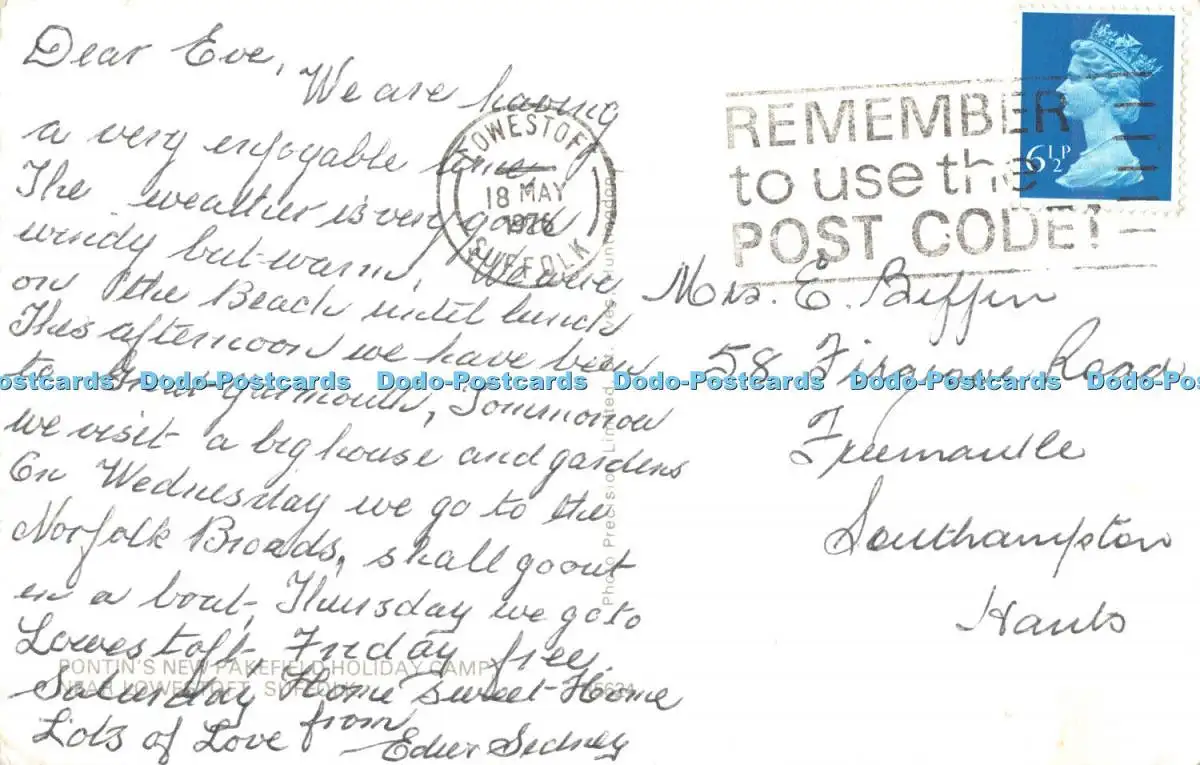 Dear Eve,
We are having
a very enjoyable time
The weather is very good
windy but warm We were
on the Beach until lunch
This afternoon we have been
to Great Yarmouth, Tommorrow
we visit a big house and gardens
On Wednesday we go to the
Norfolk Broads, shall go out
in a boat, Thursday we go to
Lowestoft, Friday free.
Saturday Home sweet Home
Lots of Love from
Sidney
LOWESTOFT
18 MAY
1976
SUFFOLK
REMEMBER
to use the
POST CODE!
6½P
Mrs. E. Biffin
58 Firgrove Road
Freemantle
Southampton
Hants
Photo Precision Limited, St. Ives, Huntingdon
PONTIN'S NEW PAKEFIELD HOLIDAY CAMP
NEAR LOWESTOFT, SUFFOLK
Dodo-Postcards Dodo-Postcards Dodo-Postcards Dodo-Postcards Dodo-Postcards